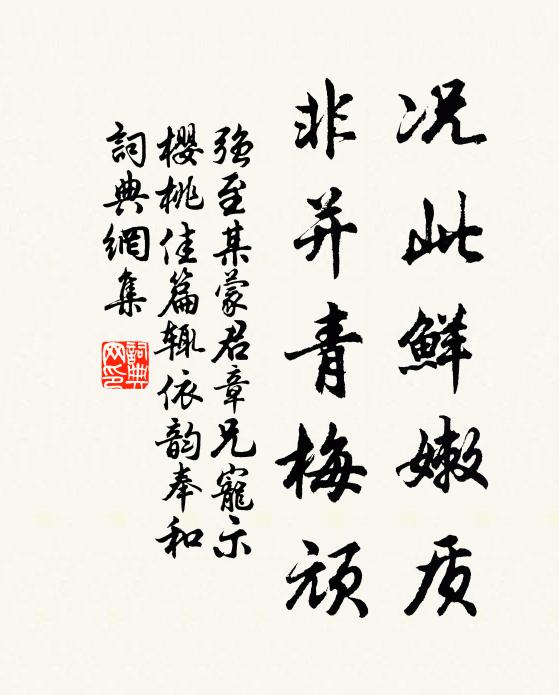 况此鲜嫩质
非并青梅顽
强至某蒙君章兄寵示
樱桃佳篇辄依韵奉和
詞典網集
詞典网印